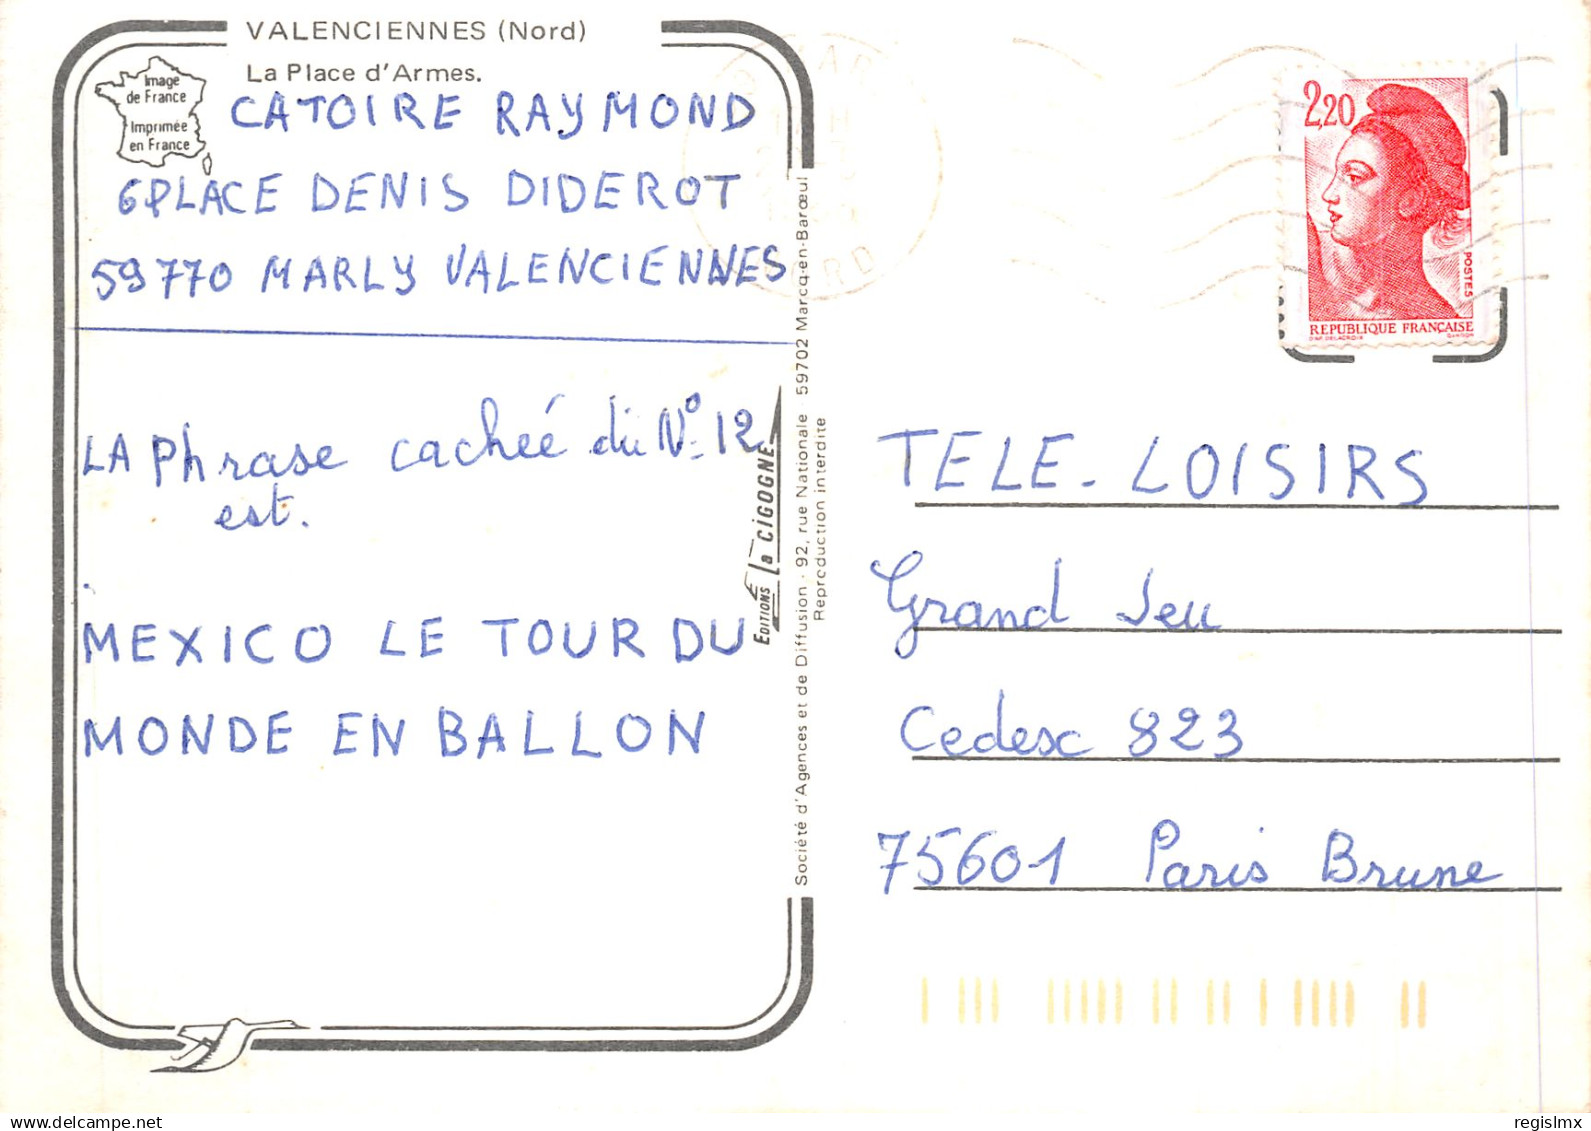 VALENCIENNES (Nord)
La Place d'Armes.
Image
de France
Imprimée
en France
CATOIRE RAYMOND
6 PLACE DENIS DIDEROT
59770 MARLY VALENCIENNES
LA Phrase cachée du N° 12
est.
MEXICO LE TOUR DU
MONDE EN BALLON
EDITIONS La CIGOGNE
Société d'Agences et de Diffusion - 92, rue Nationale 59702 Marcq-en-Barœul
Reproduction interdite
NORD
2,20
POSTES
REPUBLIQUE FRANÇAISE
D'AP. DELACROIX GANDON
TELE-LOISIRS
Grand Jeu
Cedesc 823
75601 Paris Brune
regislmx